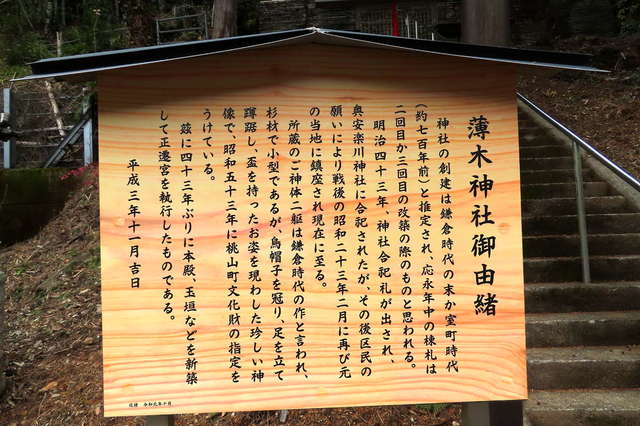 薄木神社御由緒
神社の創建は鎌倉時代の末か室町時代
(約七百年前)と推定され、応永年中の棟札は
二回目か三回目の改築の際のものと思われる。
明治四十三年、神社合祀札が出され、
奥安楽川神社に合祀されたが、その後区民の
願いにより戦後の昭和二十三年二月に再び元
の当地に鎮座され現在に至る。
所蔵のご神体二躯は鎌倉時代の作と言われ、
杉材で小型であるが、烏帽子を冠り、足を立て
蹲踞し、盃を持ったお姿を現わした珍しい神
像で、昭和五十三年に桃山町文化財の指定を
うけている。
茲に四十三年ぶりに本殿、玉垣などを新築
して正遷宮を執行したものである。
平成三年十一月吉日
改修 令和元年十月